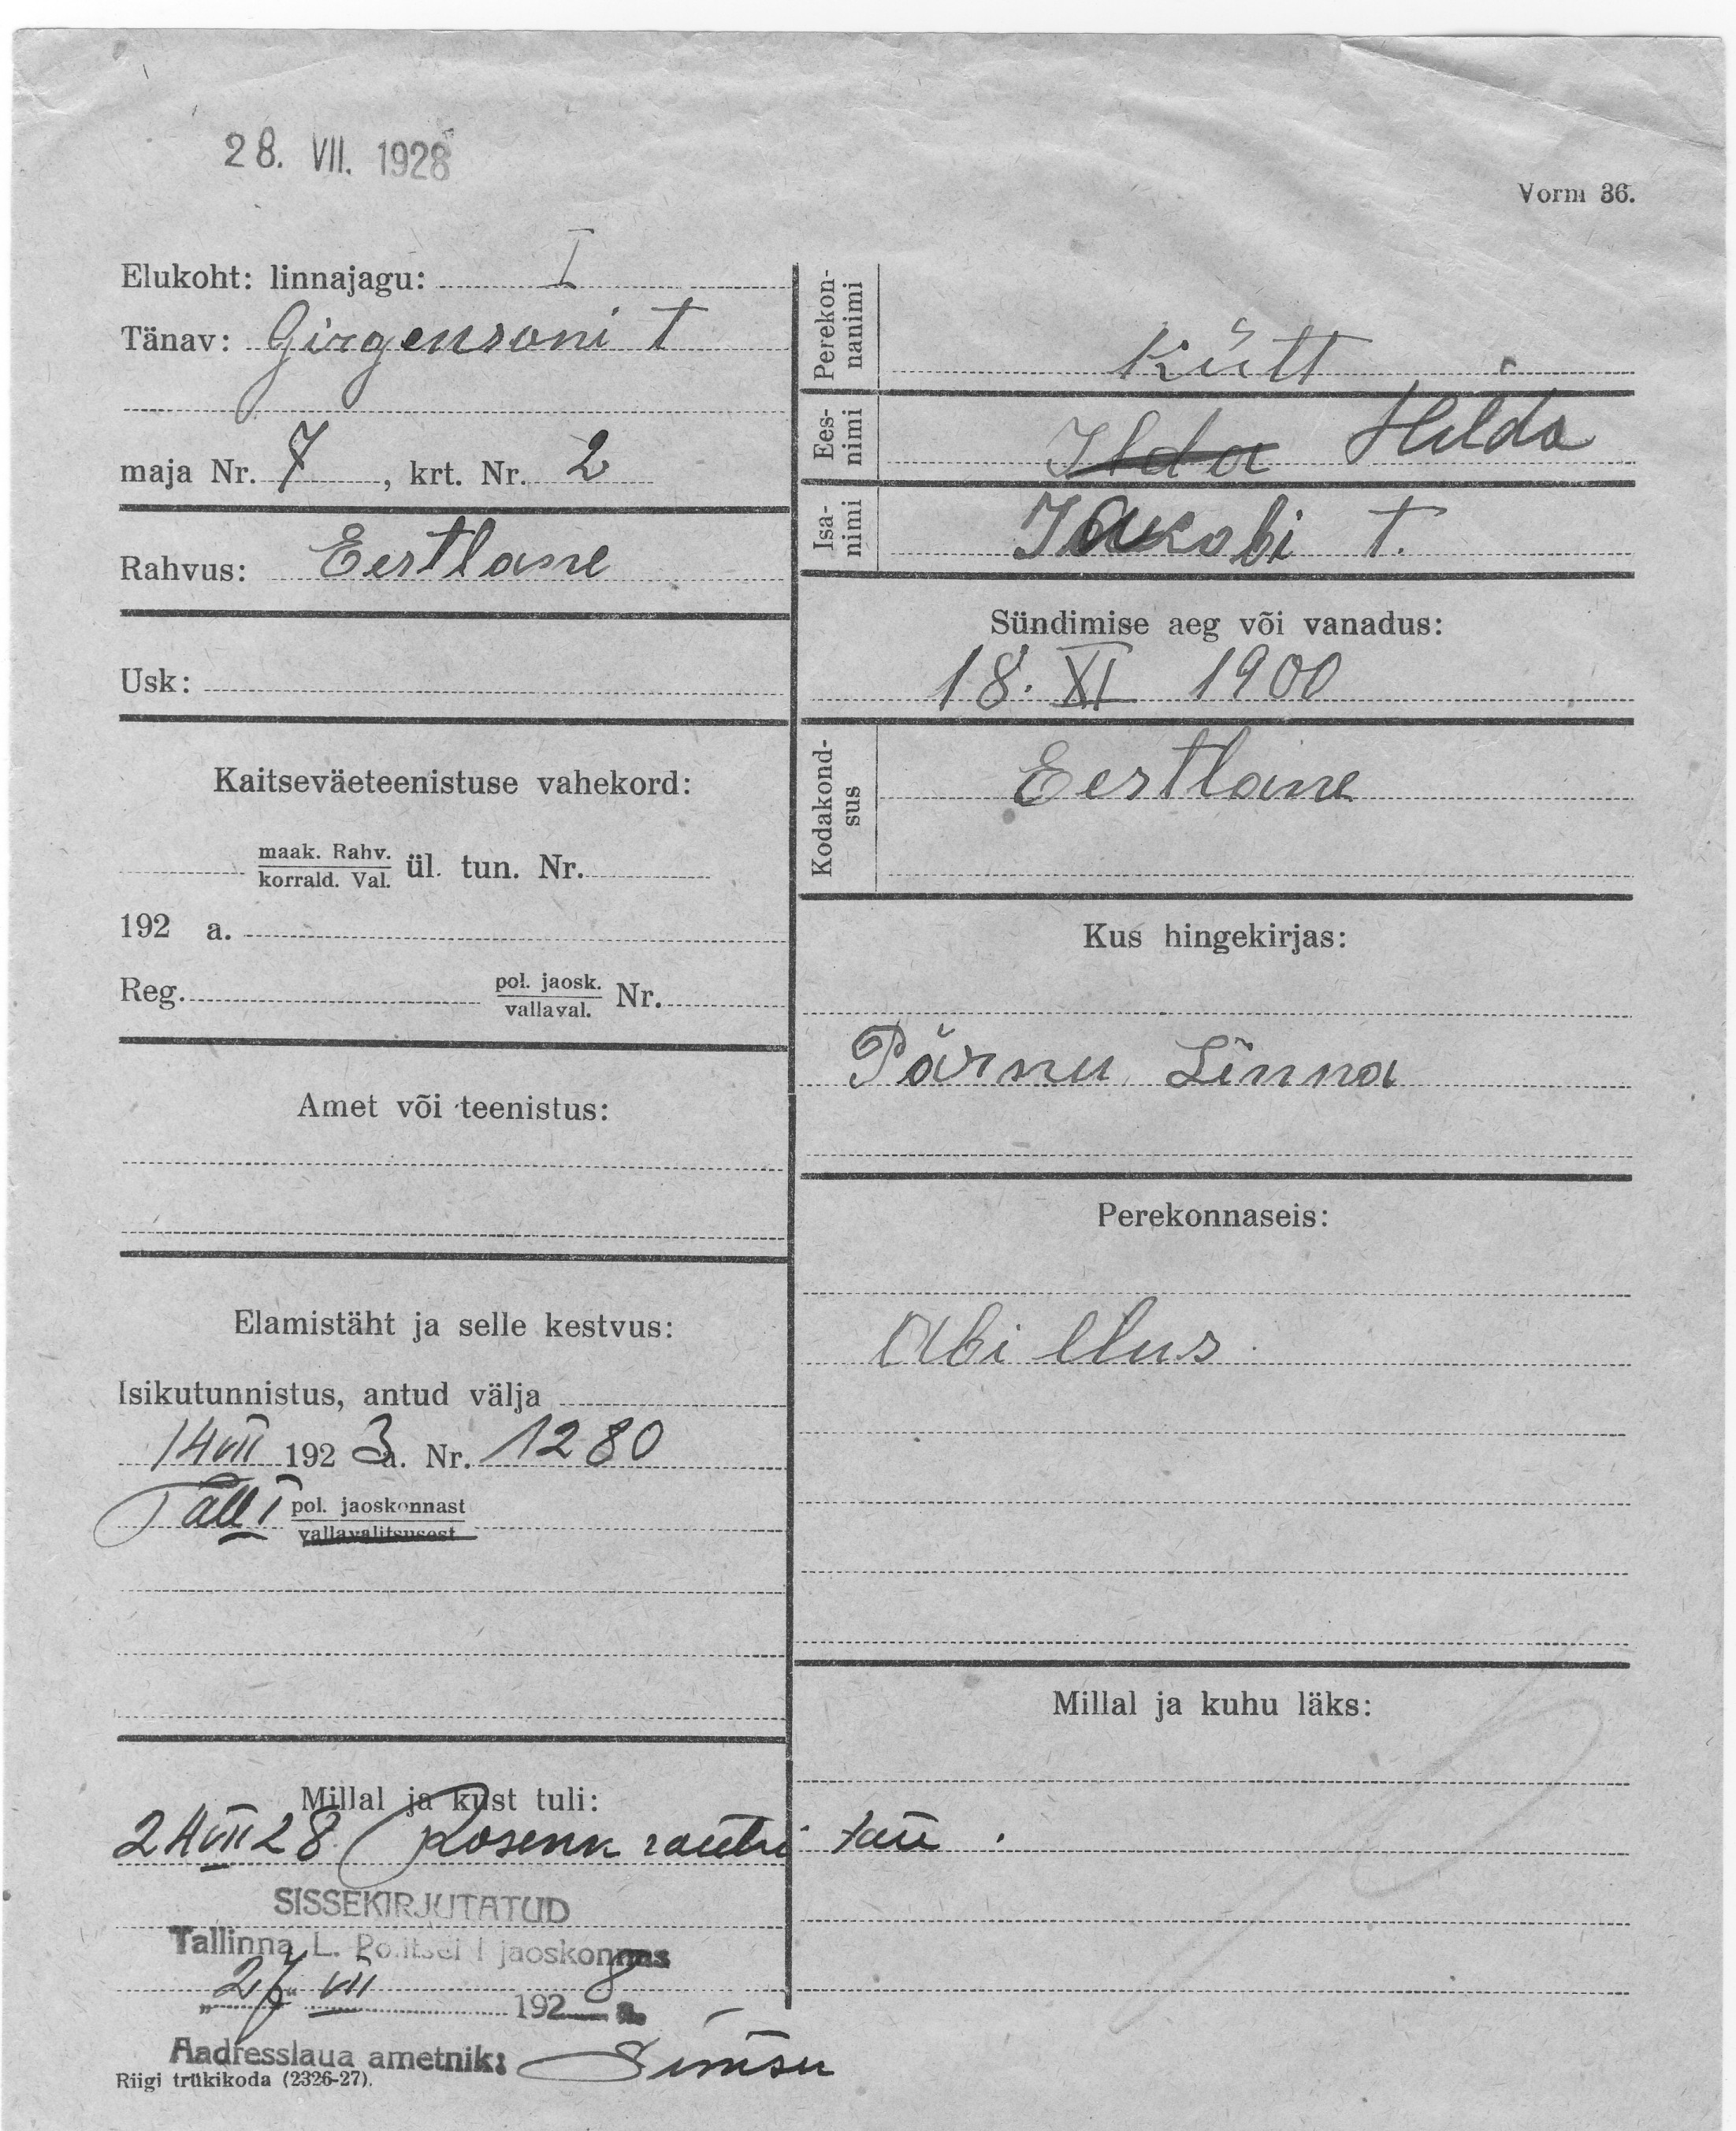 28. VII. 1928
Vorm 36.
Elukoht: linnajagu: I
Tänav: Girgensoni t
maja Nr. 7, krt. Nr. 2
Rahvus: Eestlane
Usk:
Kaitseväeteenistuse vahekord:
maak. Rahv.
korrald. Val. ül. tun. Nr.
192 a.
Reg. pol. jaosk. Nr.
vallaval.
Amet või teenistus:
Elamistäht ja selle kestvus:
Isikutunnistus, antud välja
14 VII 1923 a. Nr. 1280
Tall I pol. jaoskonnast
vallavalitsusest
Millal ja kust tuli:
24 VII 28 Rosenk tän
SISSEKIRJUTATUD
Tallinna L. Politsei I jaoskonnas
"27" VII 1928 a.
Aadresslaua ametnik:
Riigi trükikoda (2326-27).
Perekon-
nanimi Kütt
Ees-
nimi Ilda Hilda
Isa-
nimi Jakobi t.
Sündimise aeg või vanadus:
18. XI 1900
Kodakond-
sus Eestlane
Kus hingekirjas:
Pärnu Linna
Perekonnaseis:
Abi elus
Millal ja kuhu läks: